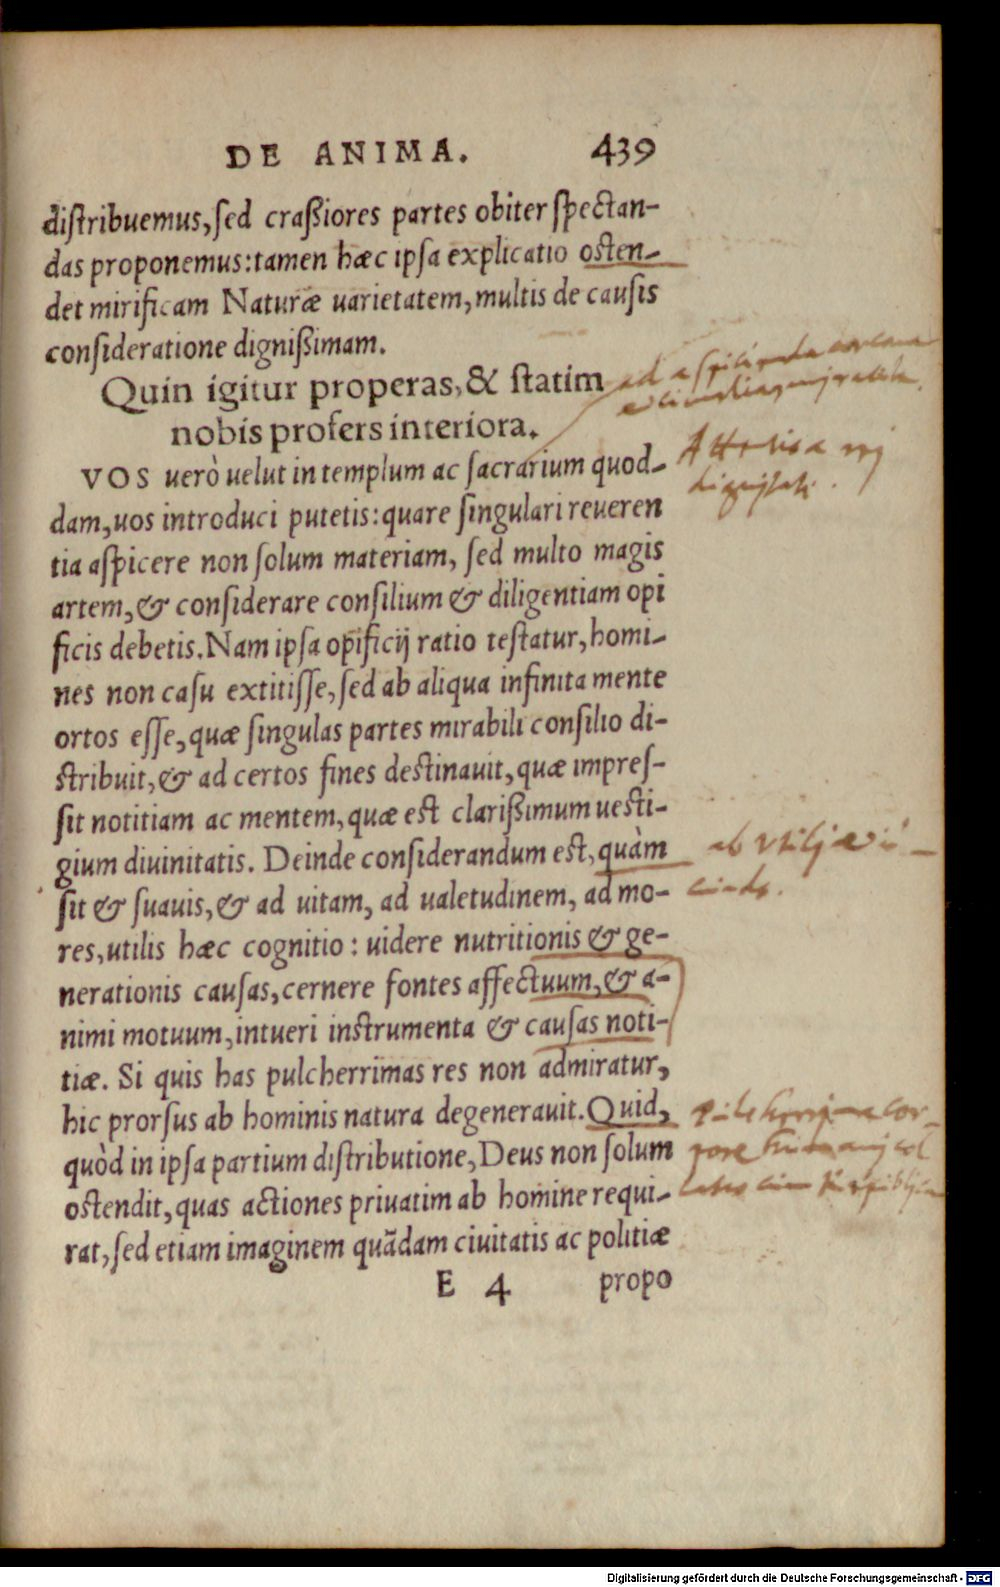 DE ANIMA. 439
diſtribuemus, ſed craßiores partes obiter ſpectan-
das proponemus: tamen hæc ipſa explicatio oſten-
det mirificam Naturæ uarietatem, multis de cauſis
conſideratione dignißimam.
Quin igitur properas, & ſtatim
nobis profers interiora.
ad aſpicienda
VOS uerò uelut in templum ac ſacrarium quod-
dam, uos introduci putetis: quare ſingulari reueren
tia aſpicere non ſolum materiam, ſed multo magis
artem, & conſiderare conſilium & diligentiam opi
ficis debetis. Nam ipſa opificij ratio teſtatur, homi-
nes non caſu extitiſſe, ſed ab aliqua infinita mente
ortos eſſe, quæ ſingulas partes mirabili conſilio di-
ſtribuit, & ad certos fines deſtinauit, quæ impreſ-
ſit notitiam ac mentem, quæ eſt clarißimum ueſti-
gium diuinitatis. Deinde conſiderandum eſt, quàm
ab
ſit & ſuauis, & ad uitam, ad ualetudinem, ad mo-
res, utilis hæc cognitio: uidere nutritionis & ge-
nerationis cauſas, cernere fontes affectuum, & a-
nimi motuum, intueri inſtrumenta & cauſas noti-
tiæ. Si quis has pulcherrimas res non admiratur,
hic prorſus ab hominis natura degenerauit. Quid,
quòd in ipſa partium diſtributione, Deus non ſolum
oſtendit, quas actiones priuatim ab homine requi-
rat, ſed etiam imaginem quãdam ciuitatis ac politiæ
E 4 propo
Digitalisierung gefördert durch die Deutsche Forschungsgemeinschaft - DFG